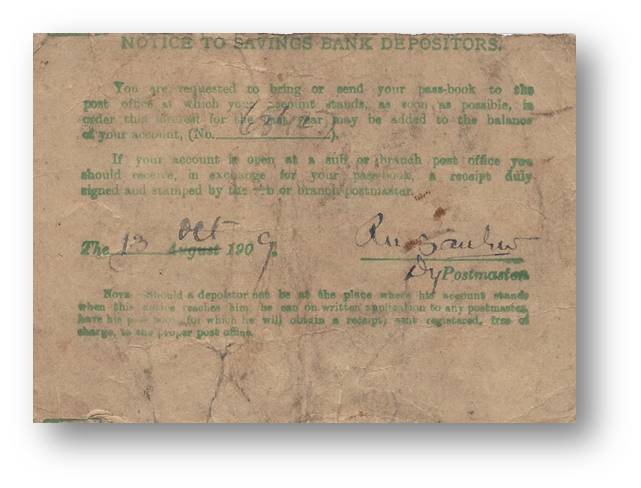 NOTICE TO SAVINGS BANK DEPOSITORS.
You are requested to bring or send your pass-book to the
post office at which your account stands, as soon as possible, in
order that interest for the past year may be added to the balance
of your account, (No. ).
If your account is open at a sub or branch post office you
should receive, in exchange for your pass-book, a receipt duly
signed and stamped by the sub or branch postmaster.
The 13 August Oct 1909.
Dy Postmaster
NOTE—Should a depositor not be at the place where his account stands
when this notice reaches him, he can on written application to any postmaster,
have his pass book, for which he will obtain a receipt, sent registered, free of
charge, to the proper post office.